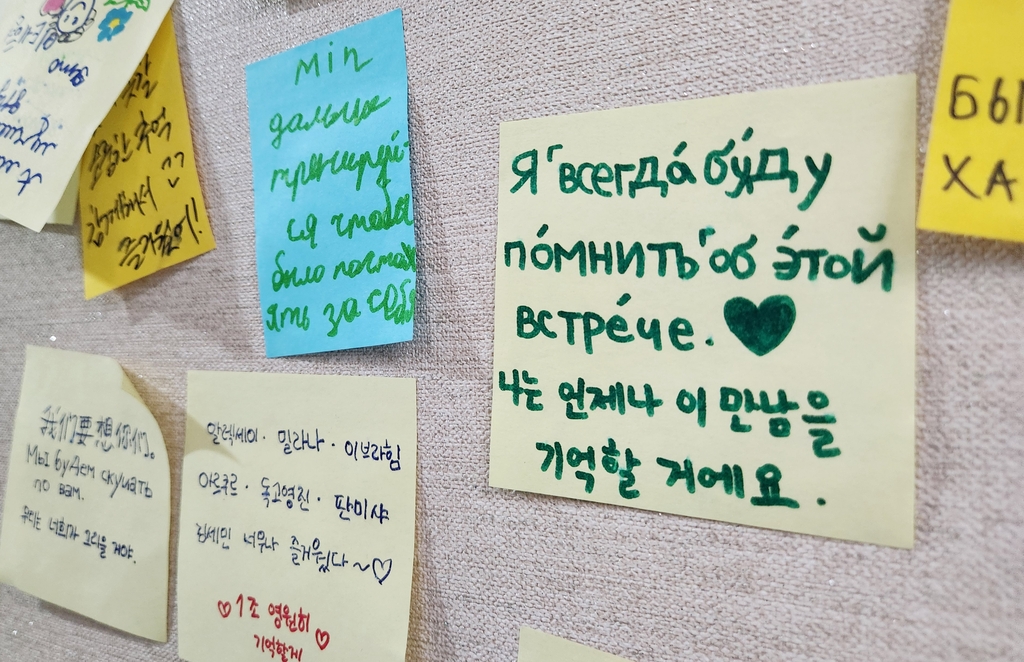 Min
дальше
тренируй-
ся чтобы
было
за себя
Я всегда́ бу́ду
по́мнить об э́той
встре́че.
나는 언제나 이 만남을
기억할 거에요.
БЫ
ХА
我们要想你们。
Мы будем скучать
по вам.
우리는 너희가 그리울 거야.
알렉세이 · 밀라나 · 이브라힘
아르투르 · 독고영진 · 판미샤
너무나 즐거웠다~♡
♡1조 영원히
기억할게♡
추억
즐거웠어!!